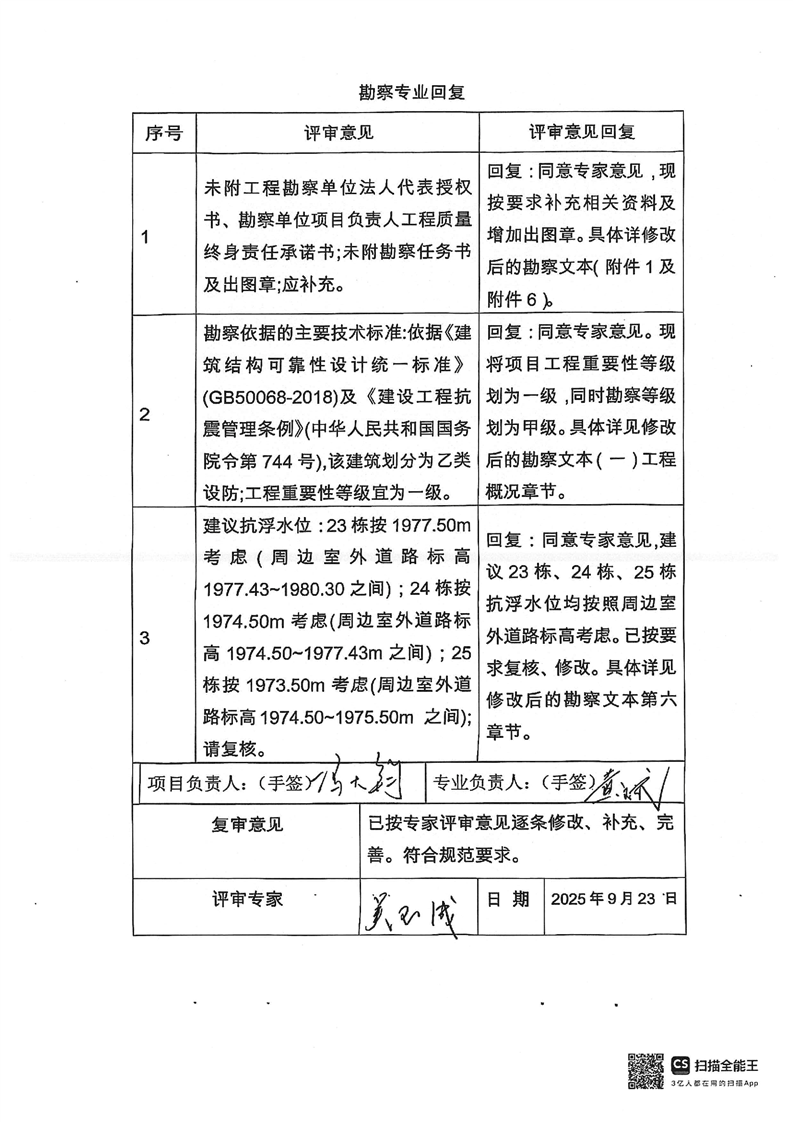 勘察专业回复
序号
评审意见
评审意见回复
1
未附工程勘察单位法人代表授权
书、勘察单位项目负责人工程质量
终身责任承诺书;未附勘察任务书
及出图章;应补充。
回复：同意专家意见，现
按要求补充相关资料及
增加出图章。具体详修改
后的勘察文本(附件1及
附件6)。
2
勘察依据的主要技术标准:依据《建
筑结构可靠性设计统一标准》
(GB50068-2018)及《建设工程抗
震管理条例》(中华人民共和国国务
院令第744号),该建筑划分为乙类
设防;工程重要性等级宜为一级。
回复：同意专家意见。现
将项目工程重要性等级
划为一级,同时勘察等级
划为甲级。具体详见修改
后的勘察文本(一)工程
概况章节。
3
建议抗浮水位：23栋按1977.50m
考虑(周边室外道路标高
1977.43~1980.30之间)；24栋按
1974.50m考虑(周边室外道路标
高1974.50~1977.43m之间)；25
栋按1973.50m考虑(周边室外道
路标高1974.50~1975.50m 之间);
请复核。
回复：同意专家意见,建
议23栋、24栋、25栋
抗浮水位均按照周边室
外道路标高考虑。已按要
求复核、修改。具体详见
修改后的勘察文本第六
章节。
项目负责人：(手签)
专业负责人：(手签)
复审意见
已按专家评审意见逐条修改、补充、完
善。符合规范要求。
评审专家
日 期
2025年9月23日
CS 扫描全能王
3亿人都在用的扫描App